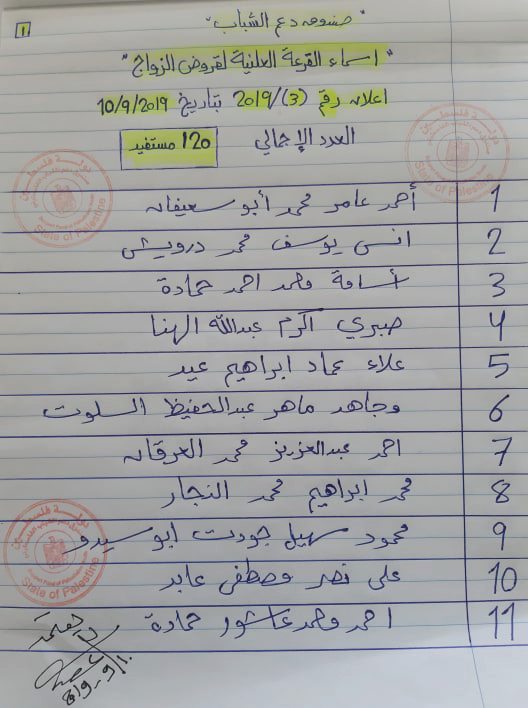 1
" مشروع دعم الشباب "
" اسماء القرعة العلنية لقروض الزواج "
اعلان رقم (3) /2019 بتاريخ 10/9/2019
العدد الإجمالي 120 مستفيد
1 أحمد عامر محمد أبو سعيفان
2 انس يوسف محمد درويش
3 أسامة محمد احمد حمادة
4 صبري اكرم عبدالله الهنا
5 علاء عماد ابراهيم عيد
6 مجاهد ماهر عبدالحفيظ السلوت
7 احمد عبدالعزيز محمد العرقان
8 محمد ابراهيم محمد النجار
9 محمود سهيل جودت ابو سيدو
10 علي نصر مصطفى عابد
11 احمد محمد عاشور حمادة
دولة فلسطين
State of Palestine
دولة فلسطين
State of Palestine
دولة فلسطين
State of Palestine
يعتمد